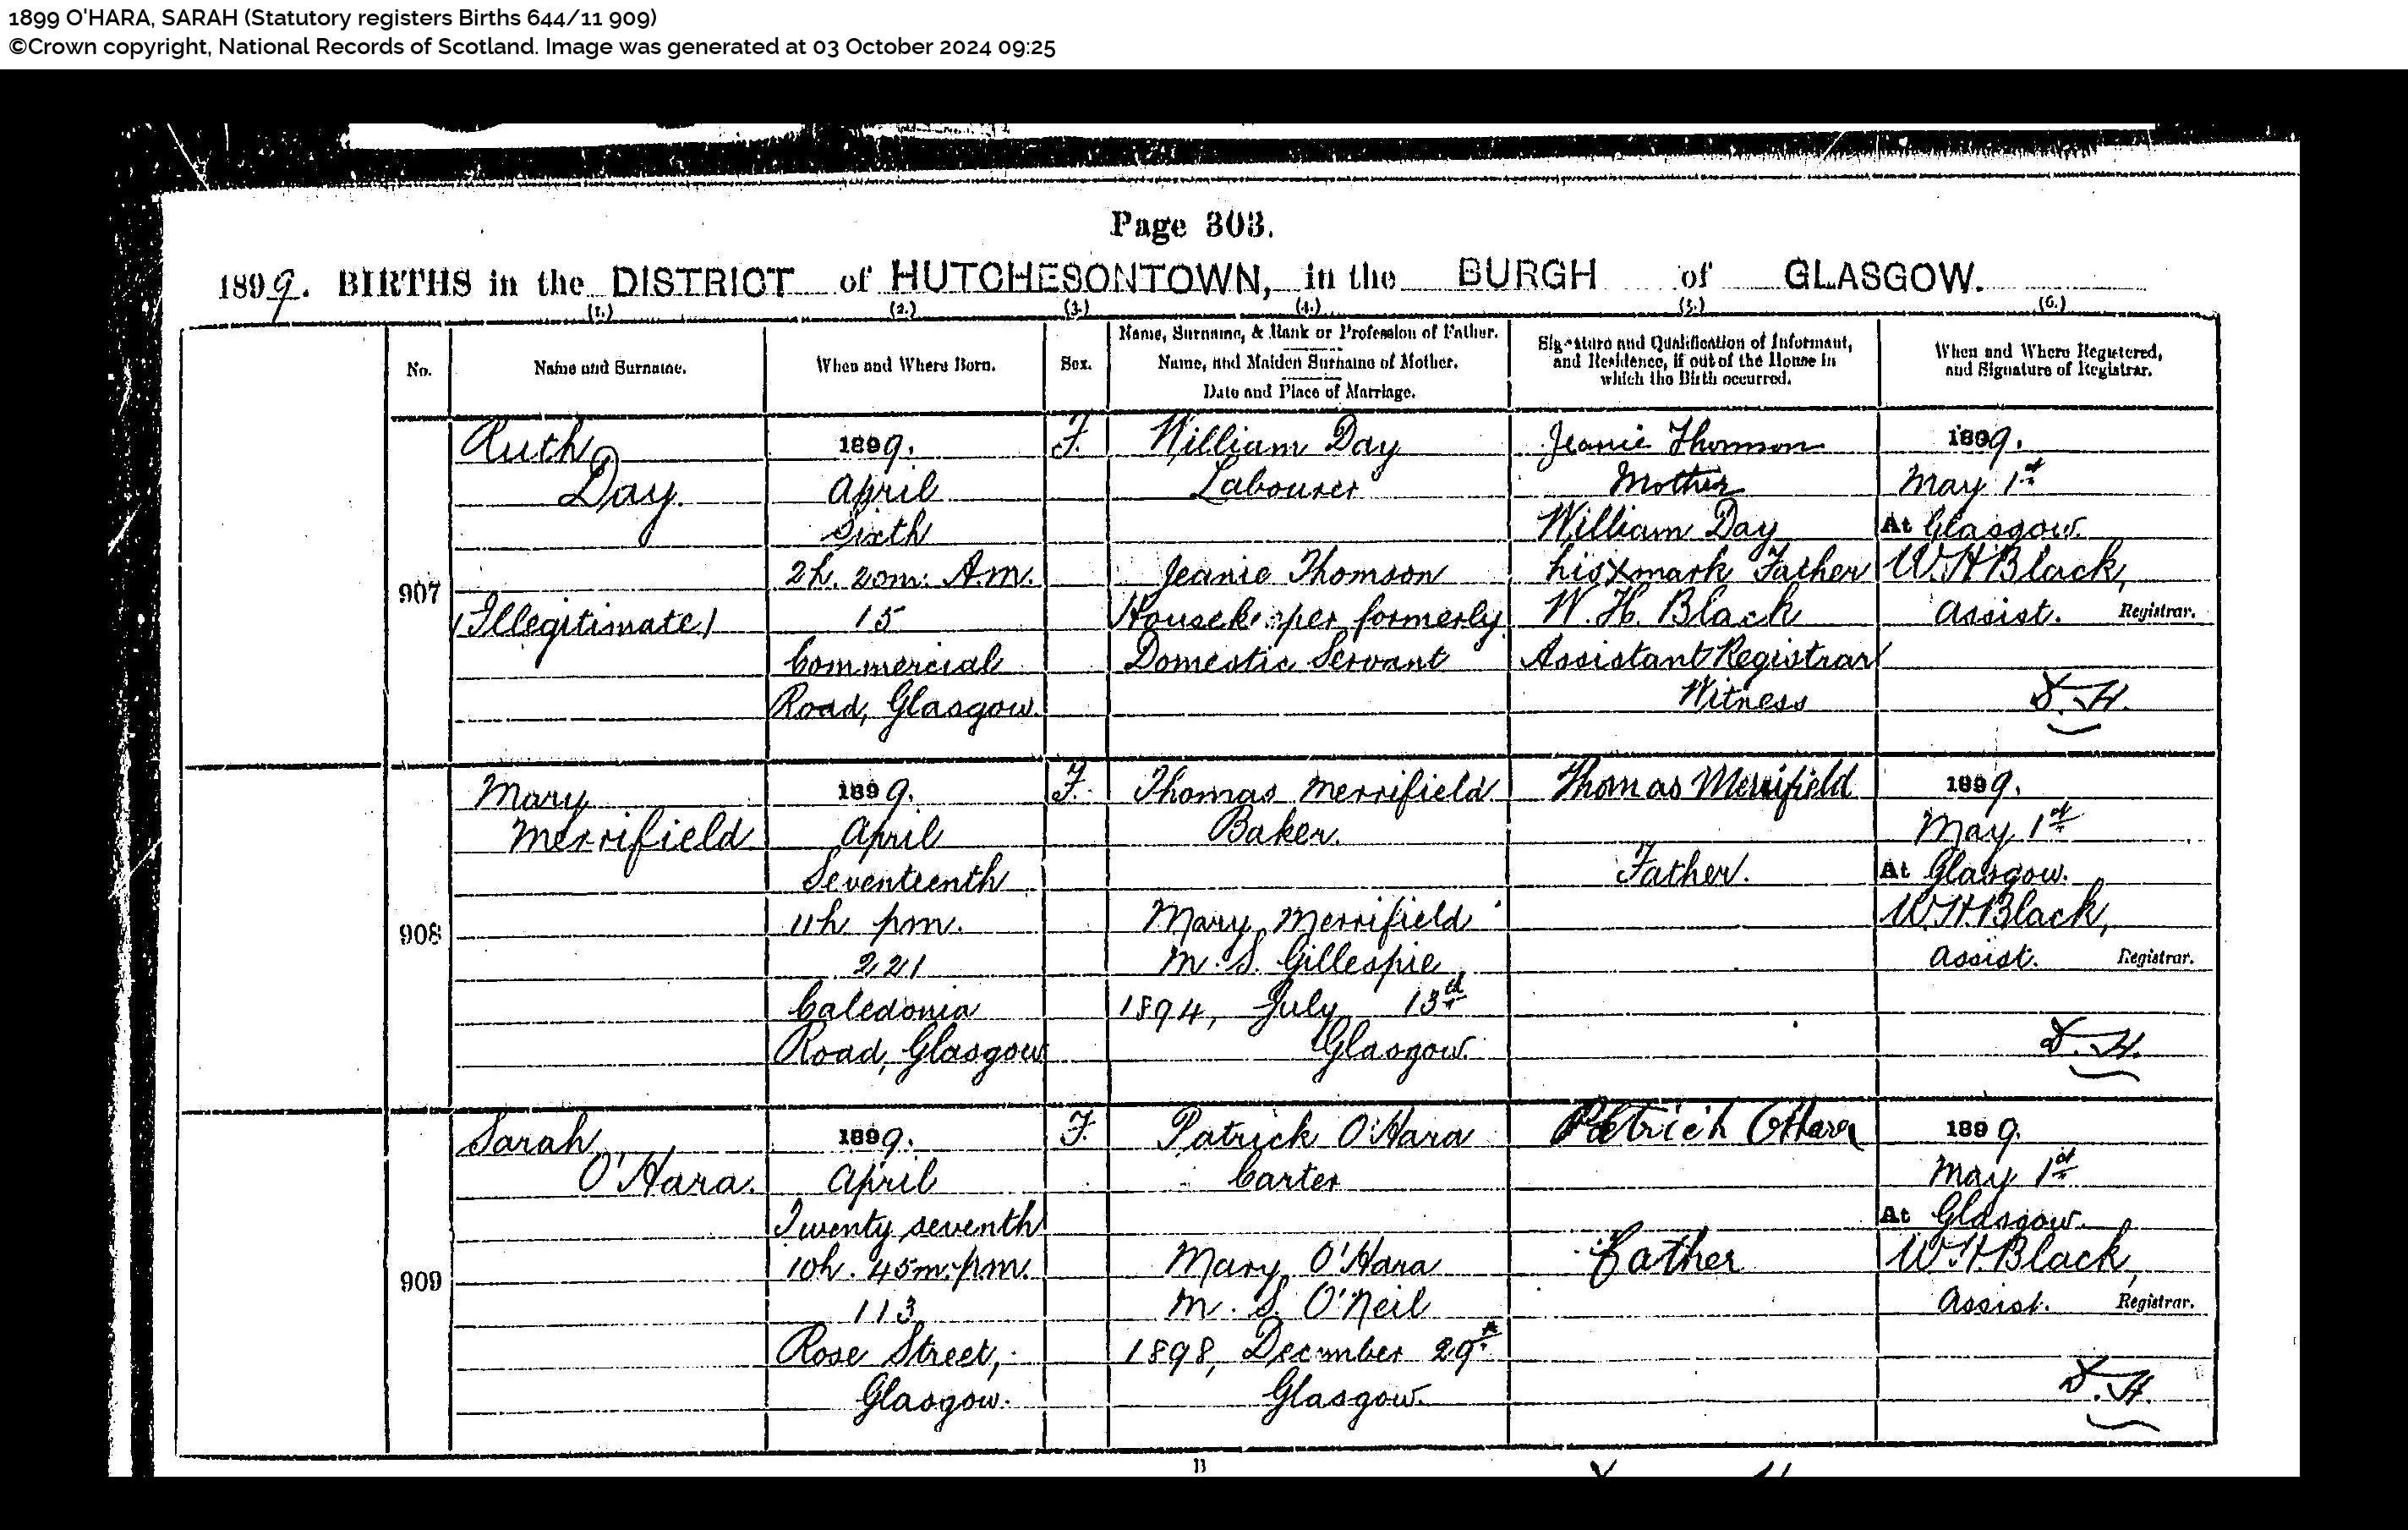 1899 O'HARA, SARAH (Statutory registers Births 644/11 909)
©Crown copyright, National Records of Scotland. Image was generated at 03 October 2024 09:25
Page 303.
1899. BIRTHS in the DISTRICT of HUTCHESONTOWN, in the BURGH of GLASGOW.
(1.) (2.) (3.) (4.) (5.) (6.)
No.
Name and Surname.
When and Where Born.
Sex.
Name, Surname, & Rank or Profession of Father.
Name, and Maiden Surname of Mother.
Date and Place of Marriage.
Signature and Qualification of Informant,
and Residence, if out of the House in
which the Birth occurred.
When and Where Registered,
and Signature of Registrar.
907
Ruth
Day.
(Illegitimate)
1899.
April
Sixth
2h. 20m. A.m.
15
Commercial
Road, Glasgow.
F.
William Day
Labourer
Jeanie Thomson
Housekeeper formerly
Domestic Servant
Jeanie Thomson
Mother
William Day
his x mark Father
W. H. Black
Assistant Registrar
Witness
1899.
May 1st
At Glasgow.
W. H. Black,
Assist. Registrar.
D. H.
908
Mary
Merrifield
1899.
April
Seventeenth
11h pm.
221
Caledonia
Road, Glasgow
F.
Thomas Merrifield
Baker.
Mary Merrifield
M. S. Gillespie
1894, July 13th
Glasgow.
Thomas Merrifield
Father.
1899.
May 1st
At Glasgow.
W. H. Black,
Assist. Registrar.
D. H.
909
Sarah
O'Hara.
1899.
April
Twenty seventh
10h. 45m. pm.
113
Rose Street,
Glasgow.
F.
Patrick O'Hara
Carter
Mary O'Hara
M. S. O'Neil
1898, December 29th
Glasgow.
Patrick O'Hara
Father
1899.
May 1st
At Glasgow.
W. H. Black,
Assist. Registrar.
D. H.